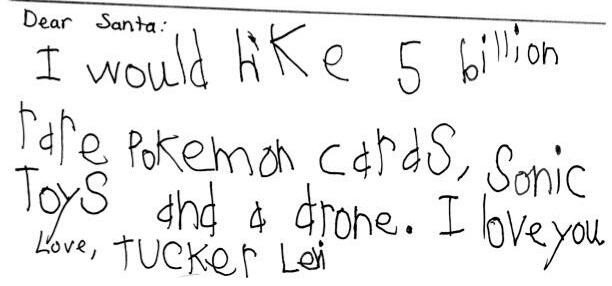 Dear Santa:
I would like 5 billion
rare Pokemon cards, Sonic
Toys and a drone. I love you
Love, TUCKer Levi